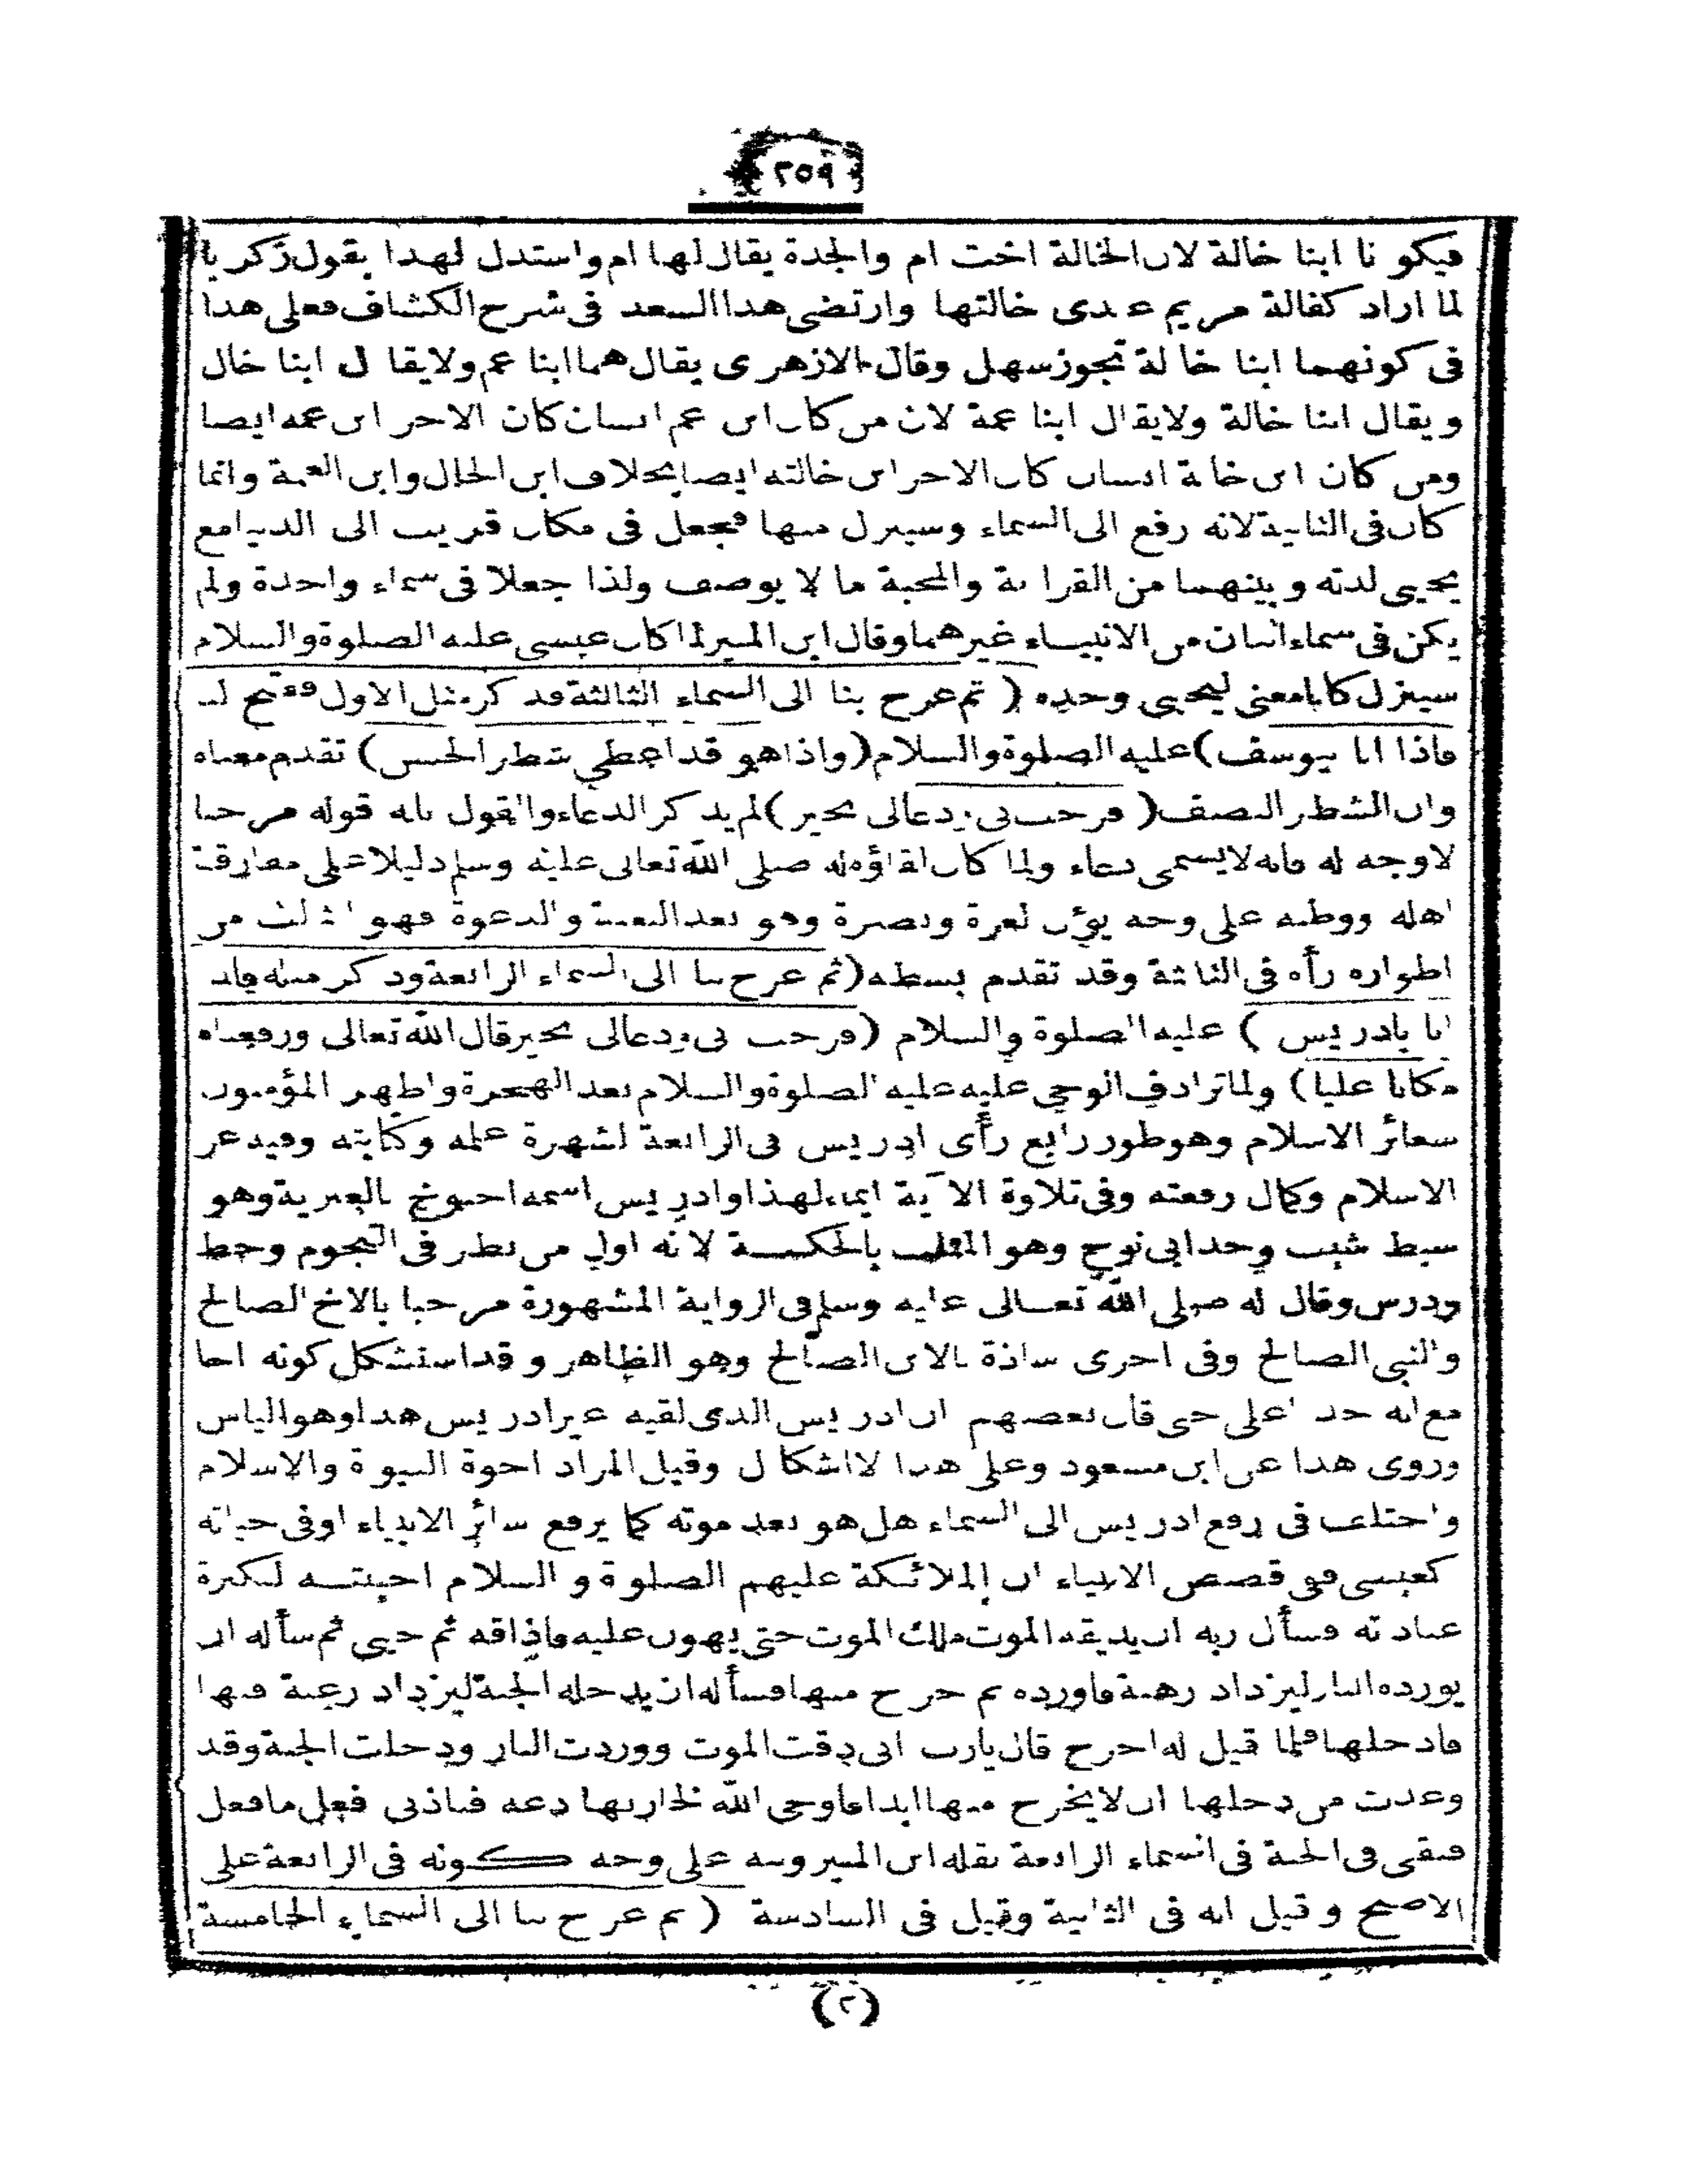 ﴿٢٥٩﴾
فيكونا ابنا خالة لان الخالة اخت ام والجدة يقال لها ام واستدل لهذا بقول زكريا
لما اراد كفالة مريم عندى خالتها وارتضى هذا السعد فى شرح الكشاف فعلى هذا
فى كونهما ابنا خالة تجوز سهل وقال الازهرى يقال هما ابنا عم ولا يقال ابنا خال
ويقال ابنا خالة ولا يقال ابنا عمة لان من كان ابن عم انسان كان الاخر ابن عمه ايضا
ومن كان ابن خالة انسان كان الاخر ابن خالته ايضا بخلاف ابن الخال وابن العمة وانما
كان فى الثانية لانه رفع الى السماء وسينزل منها فجعل فى مكان قريب الى الدنيا مع
يحيى لدته وبينهما من القرابة والمحبة ما لا يوصف ولذا جعلا فى سماء واحدة ولم
يكن فى سماء اثنان من الانبياء غيرهما وقال ابن المنير لما كان عيسى عليه الصلوة والسلام
سينزل كانا معنى ليحيى وحده ( ثم عرج بنا الى السماء الثالثة فذكر مثل الاول ففتح لنا
فاذا انا بيوسف) عليه الصلوة والسلام (واذا هو قد اعطى شطر الحسن) تقدم معناه
وان الشطر النصف ( فرحب بى ودعالى بخير) لم يذكر الدعاء والقول بانه قوله مرحبا
لا وجه له فانه لا يسمى دعاء ولما كان لقاؤه له صلى الله تعالى عليه وسلم دليلا على مفارقة
اهله ووطنه على وجه يؤل لعزة ونصرة وهو بعد البعثة والدعوة فهو ثالث من
اطواره رأه فى الثالثة وقد تقدم بسطه (ثم عرج بنا الى السماء الرابعة وذكر مثله فاذا
انا بادريس ) عليه الصلوة والسلام (فرحب بى ودعالى بخير قال الله تعالى ورفعناه
مكانا عليا) ولما ترادف الوحى عليه عليه الصلوة والسلام بعد الهجرة واظهر المؤمنون
شعائر الاسلام وهو طور رابع رأى ادريس فى الرابعة لشهرة علمه وكتابته وفيه عز
الاسلام وكمال رفعته وفى تلاوة الآية ايماء لهذا وادريس اسمه اخنوخ بالعبرية وهو
سبط شيث وجد ابى نوح وهو الملقب بالحكمة لانه اول من نظر فى النجوم وخط
ودرس وقال له صلى الله تعالى عليه وسلم فى الرواية المشهورة مرحبا بالاخ الصالح
والنبى الصالح وفى اخرى شاذة بالابن الصالح وهو الظاهر وقد استشكل كونه اخا
مع انه جد اعلى حتى قال بعضهم ان ادريس الذى لقيه غير ادريس هذا وهو الياس
وروى هذا عن ابن مسعود وعلى هذا لا اشكال وقيل المراد اخوة النبوة والاسلام
واختلف فى رفع ادريس الى السماء هل هو بعد موته كما يرفع سائر الانبياء او فى حياته
كعيسى ففى قصص الانبياء ان الملائكة عليهم الصلوة و السلام احبته لكثرة
عبادته فسأل ربه ان يذيقه الموت ملك الموت حتى يهون عليه فاذاقه ثم حيى ثم سأله ان
يورده النار ليزداد رهبة فاورده ثم خرج منها فسأله ان يدخله الجنة ليزداد رغبة فيها
فادخلها فلما قيل له اخرج قال يارب انى ذقت الموت ووردت النار ودخلت الجنة وقد
وعدت من دخلها ان لا يخرج منها ابدا فاوحى الله لخازنها دعه فباذنى فعل ما فعل
فبقى فى الجنة فى السماء الرابعة نقله ابن المنير وبه على وجه كونه فى الرابعة على
الاصح وقيل انه فى الثانية وقيل فى السادسة ( ثم عرج بنا الى السماء الخامسة
(٢)